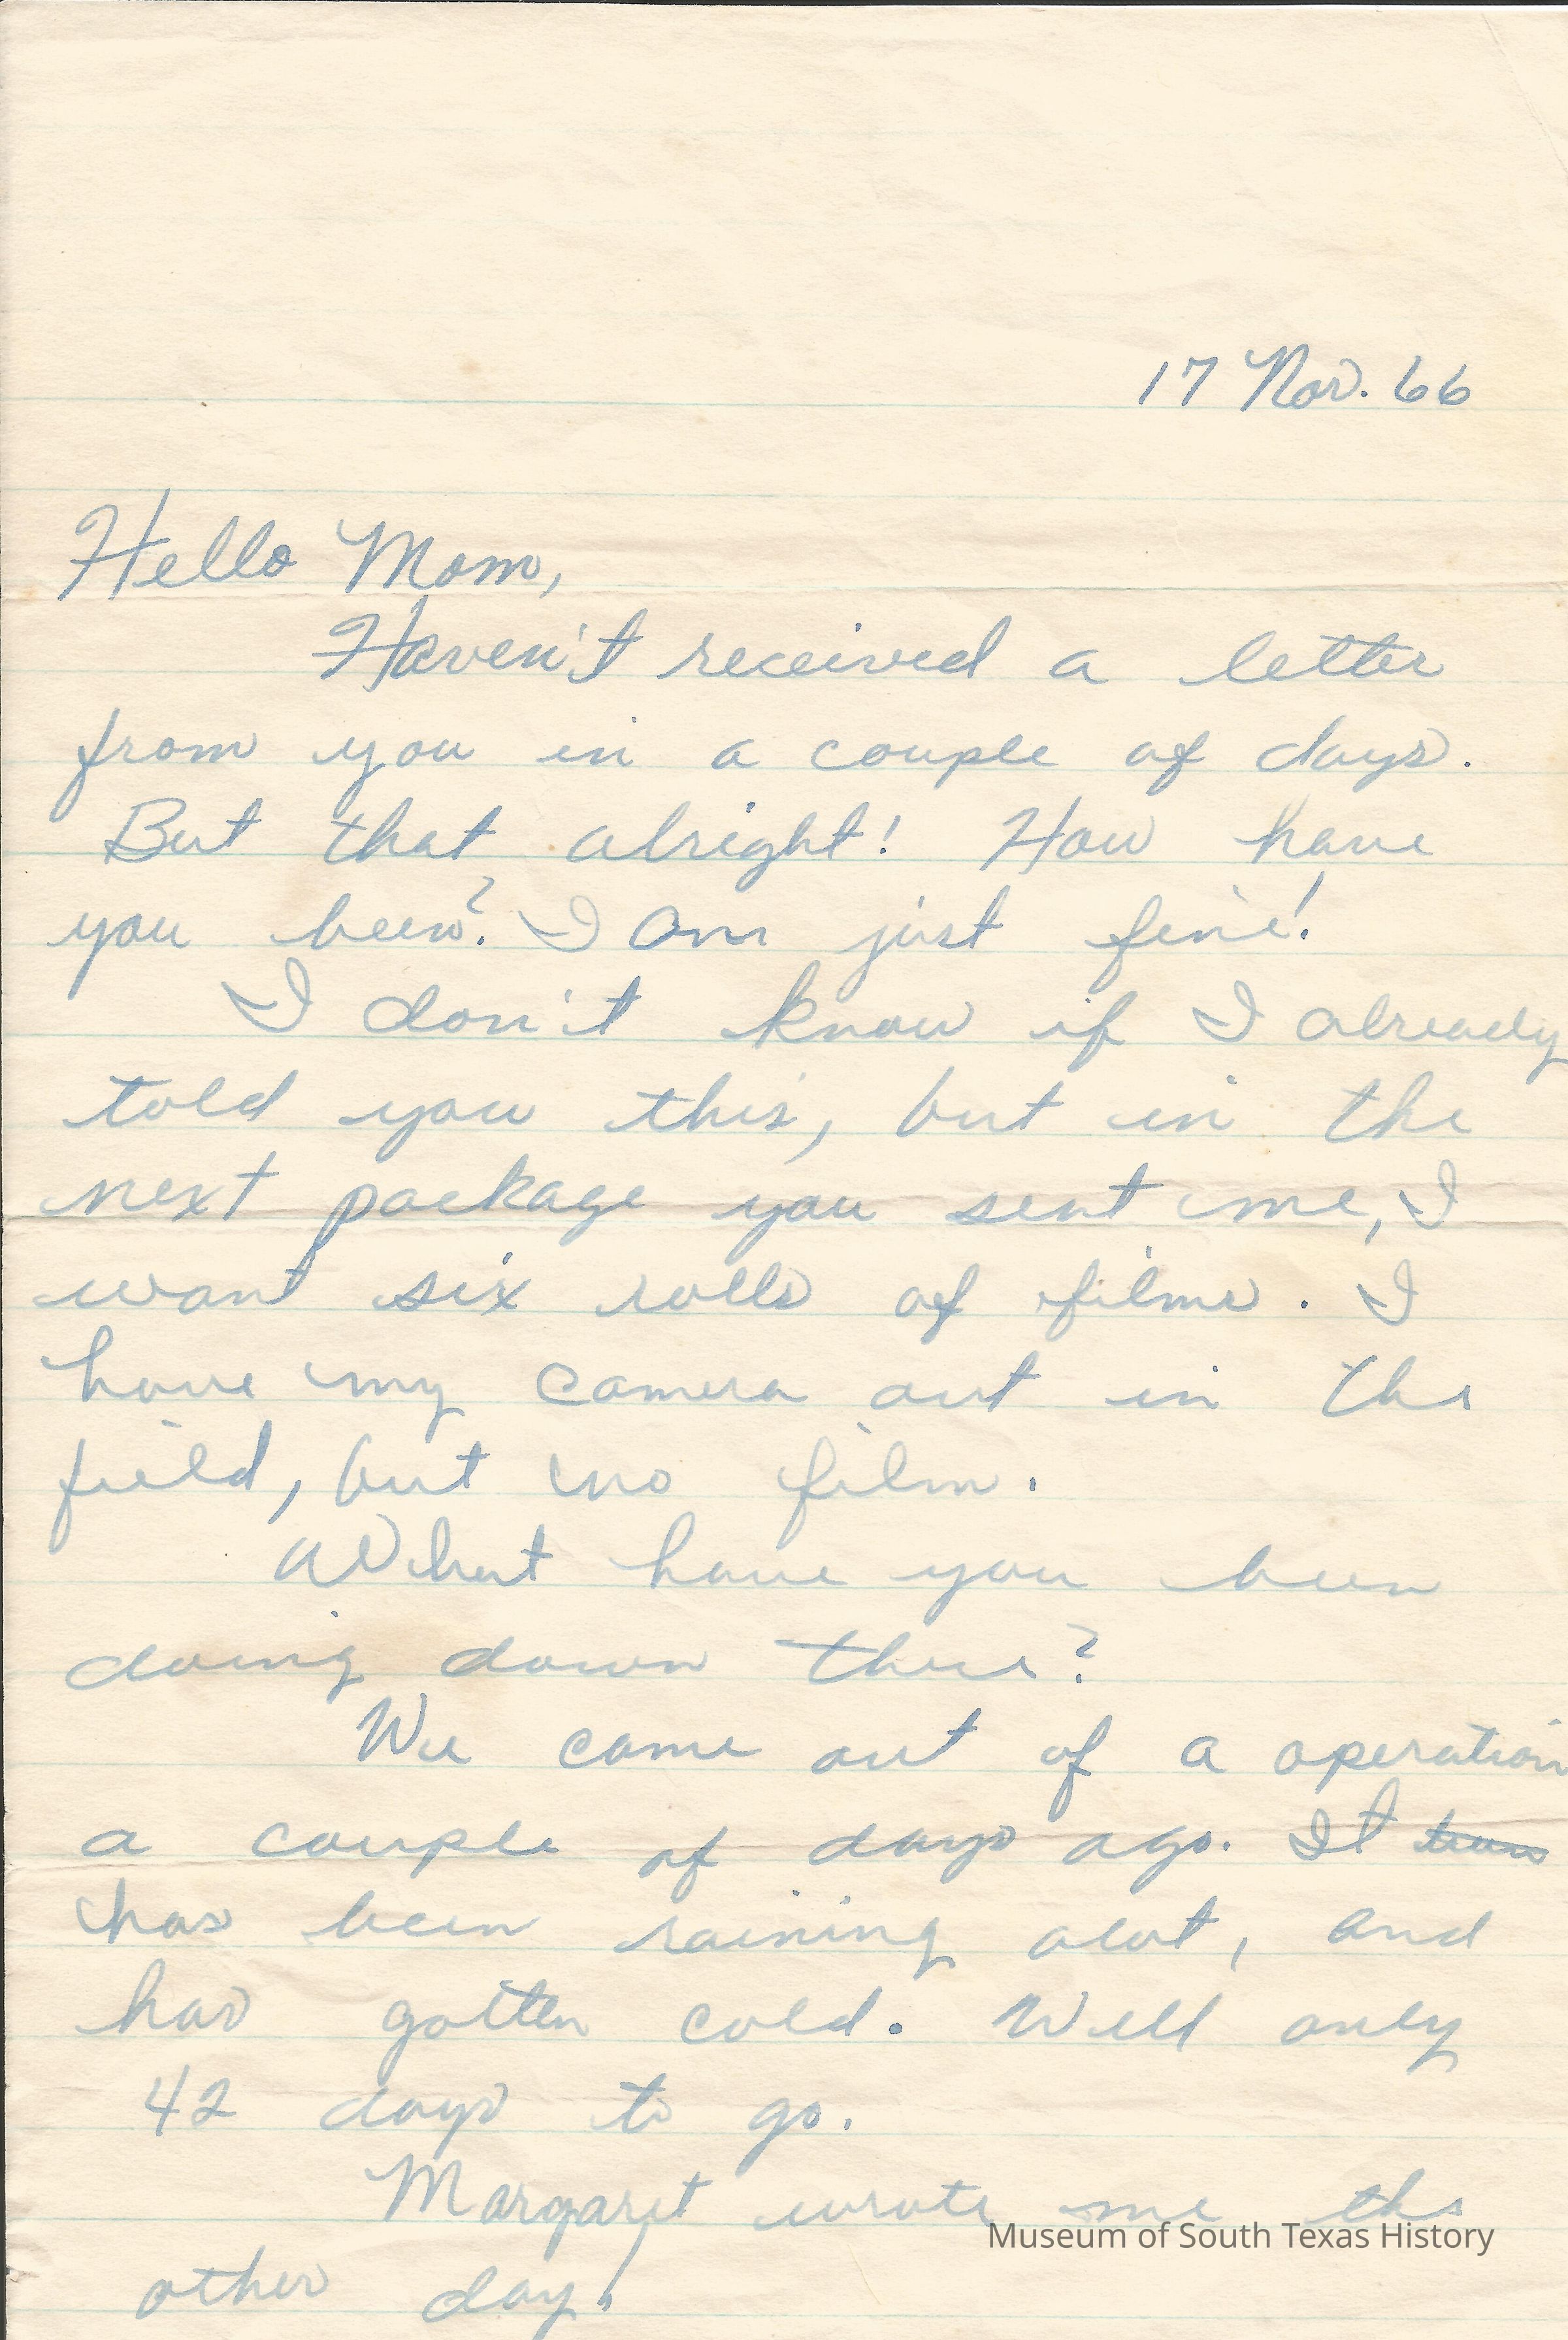 17 Nov. 66
Hello Mom,
Haven't received a letter
from you in a couple of days.
But that alright! How have
you been? I am just fine!
I don't know if I already
told you this, but in the
next package you sent me, I
want six rolls of films. I
have my camera out in the
field, but no film.
What have you been
doing down there?
We came out of a operation
a couple of days ago. It
has been raining alot, and
has gotten cold. Well only
42 days to go.
Margaret wrote me the
other day!
Museum of South Texas History